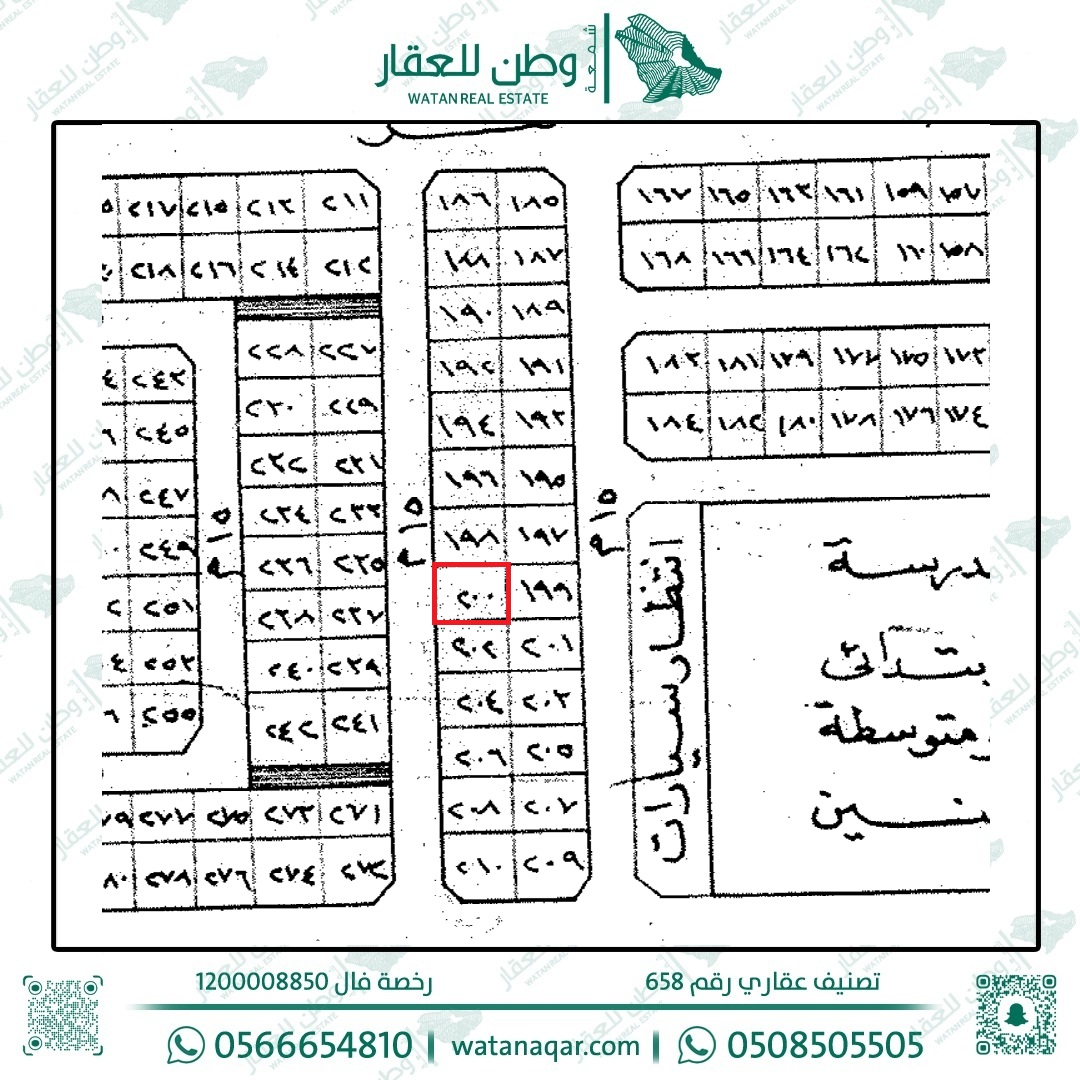 وطن للعقار
شمعة
WATAN REAL ESTATE
٢١٧ ٢١٥ ٢١٣ ٢١١
٢١٨ ٢١٦ ٢١٤ ٢١٢
٢٢٨ ٢٢٧
٢٣٠ ٢٢٩
٢٣٢ ٢٣١
٢٣٤ ٢٣٣
٢٣٦ ٢٣٥
٢٣٨ ٢٣٧
٢٤٠ ٢٣٩
٢٤٢ ٢٤١
٢٤٣
٢٤٥
٢٤٧
٢٤٩
٢٥١
٢٥٣
٢٥٥
٢٧٧ ٢٧٥ ٢٧٣ ٢٧١
٢٧٨ ٢٧٦ ٢٧٤ ٢٧٢
١٨٦ ١٨٥
١٨٨ ١٨٧
١٩٠ ١٨٩
١٩٢ ١٩١
١٩٤ ١٩٣
١٩٦ ١٩٥
١٩٨ ١٩٧
٢٠٠ ١٩٩
٢٠٢ ٢٠١
٢٠٤ ٢٠٣
٢٠٦ ٢٠٥
٢٠٨ ٢٠٧
٢١٠ ٢٠٩
١٦٧ ١٦٥ ١٦٣ ١٦١ ١٥٩ ١٥٧
١٦٨ ١٦٦ ١٦٤ ١٦٢ ١٦٠ ١٥٨
١٨٣ ١٨١ ١٧٩ ١٧٧ ١٧٥ ١٧٣
١٨٤ ١٨٢ ١٨٠ ١٧٨ ١٧٦ ١٧٤
١٥م
١٥م
١٥م
انتظار سيارات
درسة
بتدائى
متوسطة
نسين
تصنيف عقاري رقم 658
رخصة فال 1200008850
0566654810 | watanaqar.com | 0508505505